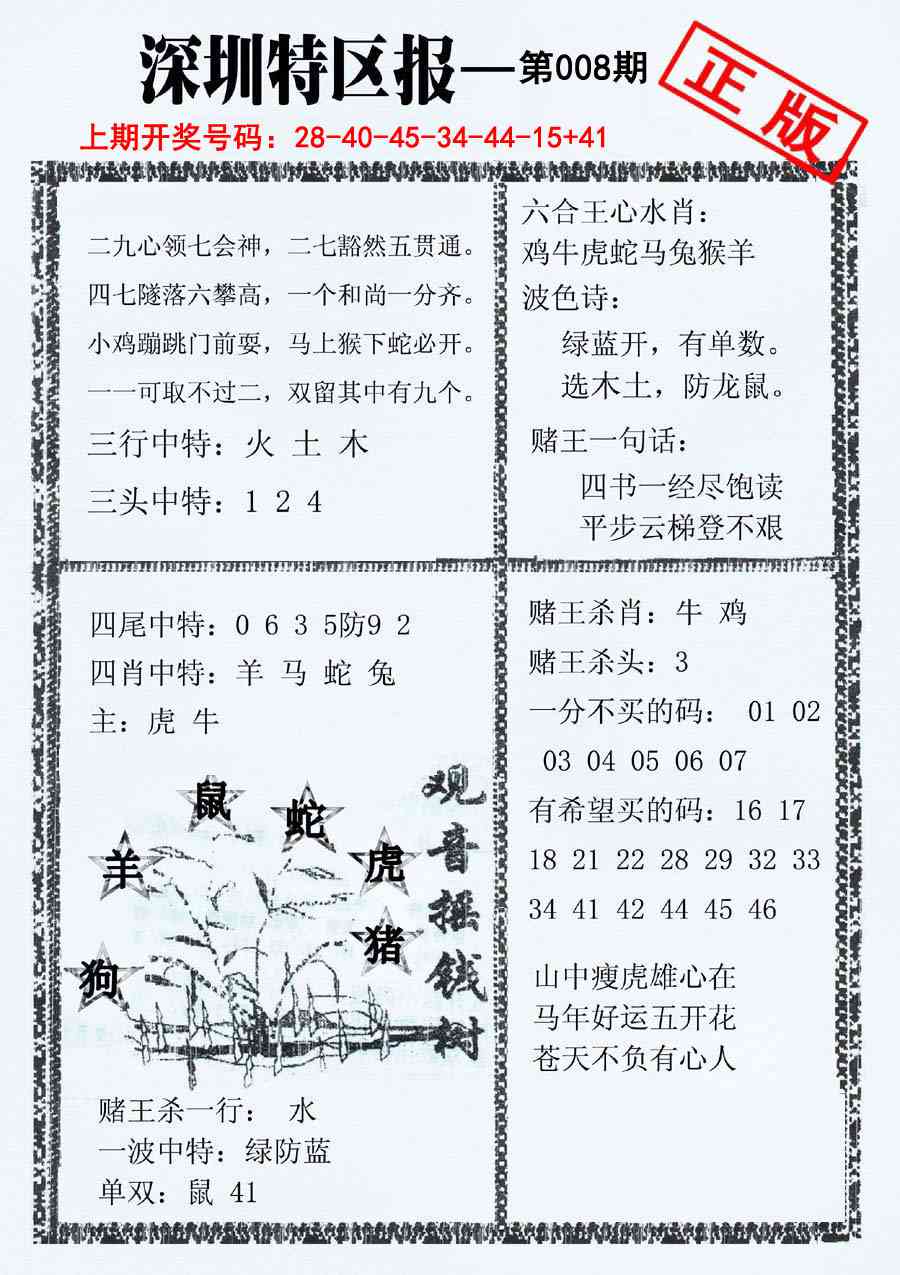 深圳特区报—第008期
正版
上期开奖号码：28-40-45-34-44-15+41
二九心领七会神，二七豁然五贯通。
四七隧落六攀高，一个和尚一分齐。
小鸡蹦跳门前耍，马上猴下蛇必开。
一一可取不过二，双留其中有九个。
三行中特：火 土 木
三头中特：1 2 4
六合王心水肖：
鸡牛虎蛇马兔猴羊
波色诗：
绿蓝开，有单数。
选木土，防龙鼠。
赌王一句话：
四书一经尽饱读
平步云梯登不艰
四尾中特：0 6 3 5防9 2
四肖中特：羊 马 蛇 兔
主：虎 牛
鼠
蛇
羊
虎
猪
狗
观音摇钱树
赌王杀一行： 水
一波中特：绿防蓝
单双：鼠 41
赌王杀肖：牛 鸡
赌王杀头：3
一分不买的码： 01 02
03 04 05 06 07
有希望买的码：16 17
18 21 22 28 29 32 33
34 41 42 44 45 46
山中瘦虎雄心在
马年好运五开花
苍天不负有心人